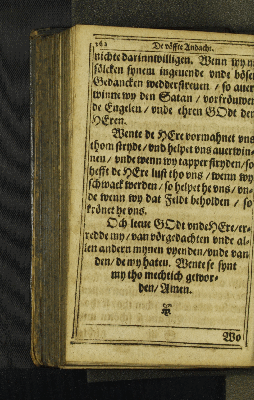 De vöffte Andacht.
nichte darinn willigen. Wenn wy
sölcken synem ingeuende vnde böse
Gedancken wedderstreuen / so auer
winne wy den Satan / vorfröuwen
de Engelen / vnde ehren GOdt den
HEren.
Wente de HEre vormahnet vns
thom stryde / vnd helpet vns auerwin-
nen / vnde wenn wy tapper stryden / so
hefft de HEre lust tho vns / wenn wy
schwack werden / so helpet he vns / vn-
de wenn wy dat Feldt beholden / so
krönet he vns.
Och leeue GOdt vnde HEre / er-
redde my / van vörgedachten vnde al-
len andern mynen vyenden / vnde van
den / de my haten. Wente se synt
my tho mechtich gewor-
den / Amen.
Wo